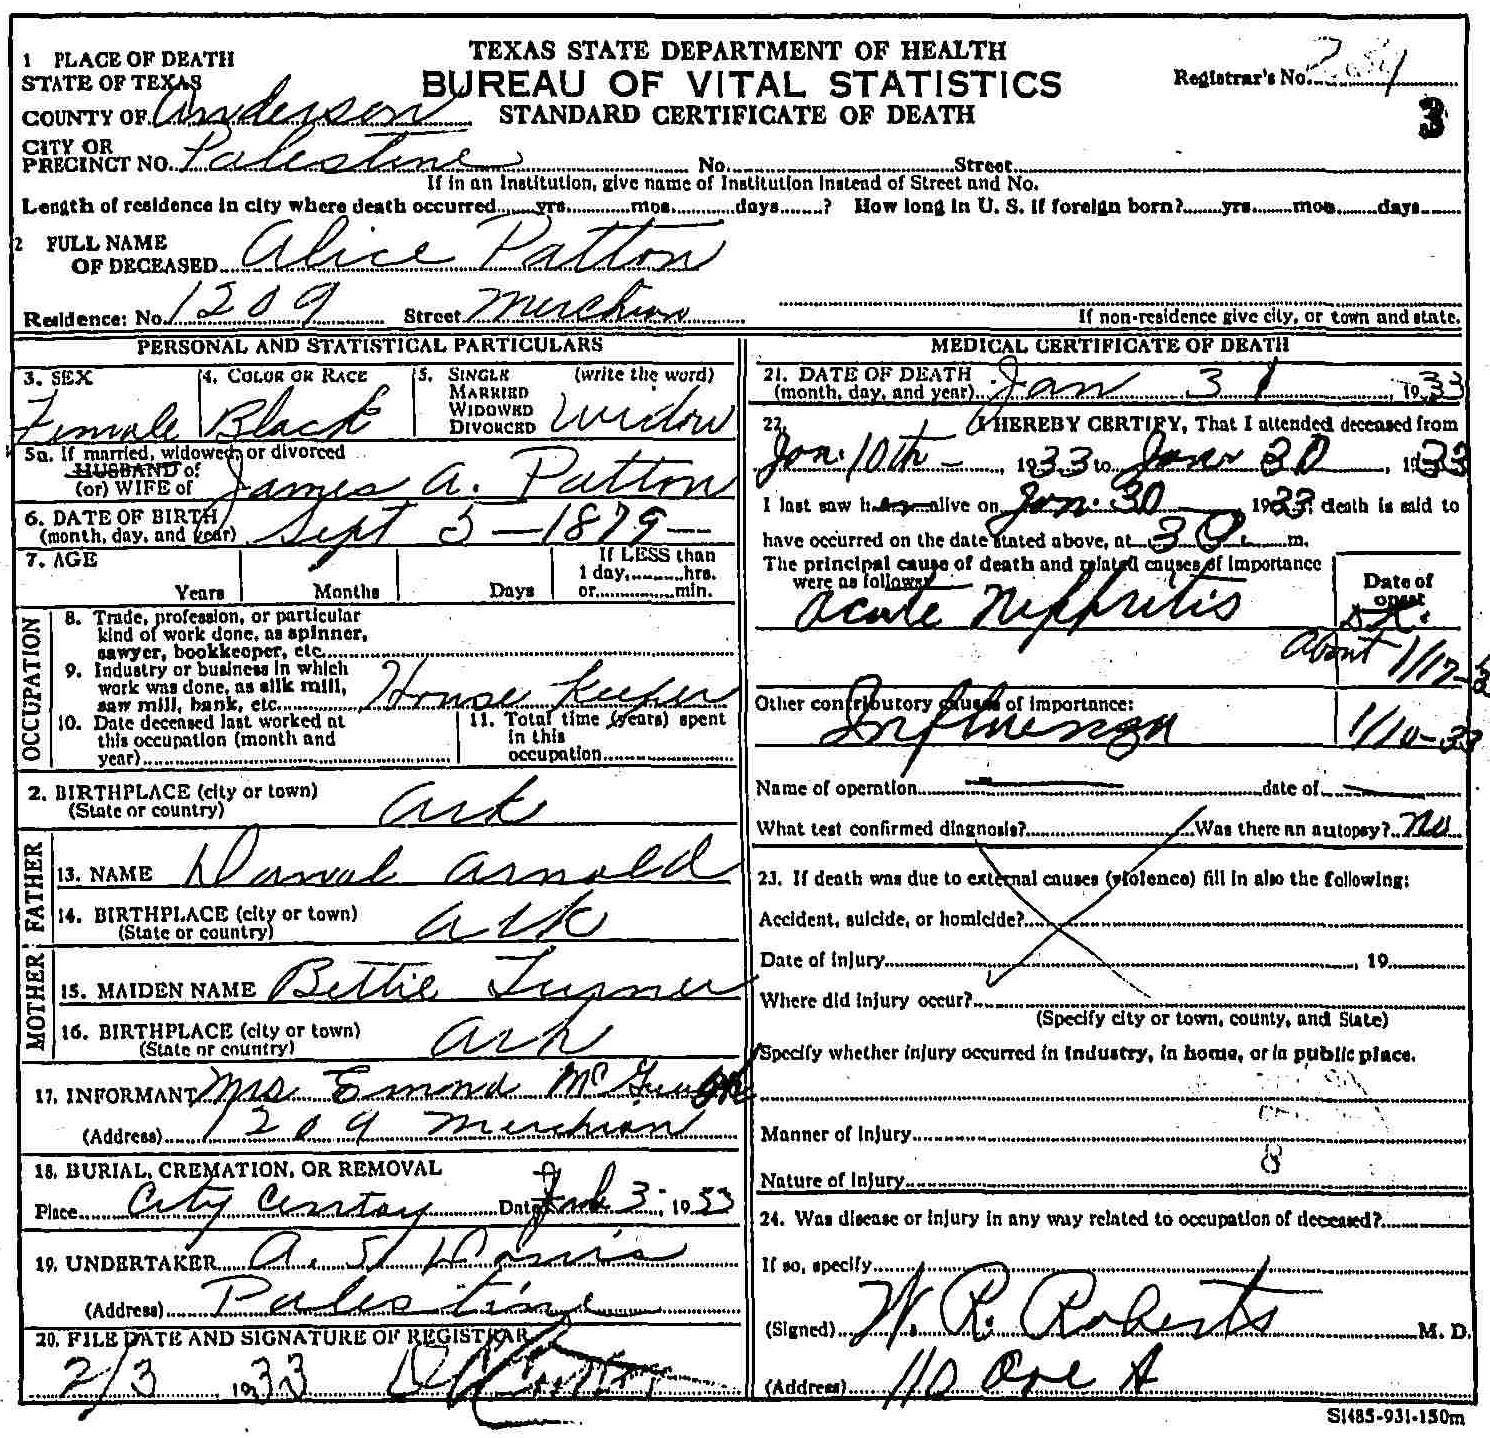 TEXAS STATE DEPARTMENT OF HEALTH
BUREAU OF VITAL STATISTICS
STANDARD CERTIFICATE OF DEATH
Registrar's No.
3
1 PLACE OF DEATH
STATE OF TEXAS
COUNTY OF Anderson
CITY OR
PRECINCT NO. Palestine No. Street
If in an Institution, give name of Institution instead of Street and No.
Length of residence in city where death occurred yrs. mos. days ? How long in U. S. if foreign born? yrs. mos. days
2 FULL NAME
OF DECEASED Alice Patton
Residence: No. 1209 Street
If non-residence give city, or town and state.
PERSONAL AND STATISTICAL PARTICULARS
3. SEX 4. COLOR OR RACE 5. SINGLE (write the word)
MARRIED
WIDOWED
DIVORCED
Female Black Widow
5a. If married, widowed, or divorced
HUSBAND of
(or) WIFE of James A. Patton
6. DATE OF BIRTH
(month, day, and year) Sept 5-1879-
7. AGE If LESS than
1 day, hrs.
Years Months Days or min.
OCCUPATION
8. Trade, profession, or particular
kind of work done, as spinner,
sawyer, bookkeeper, etc.
9. Industry or business in which
work was done, as silk mill,
saw mill, bank, etc. House Keeper
10. Date deceased last worked at
this occupation (month and
year)
11. Total time (years) spent
in this
occupation
2. BIRTHPLACE (city or town)
(State or country) Ark
FATHER
13. NAME Arnold
14. BIRTHPLACE (city or town)
(State or country) Ark
MOTHER
15. MAIDEN NAME Bettie Turner
16. BIRTHPLACE (city or town)
(State or country) Ark
17. INFORMANT Mrs
(Address) 1209
18. BURIAL, CREMATION, OR REMOVAL
Place City Date 3, 1933
19. UNDERTAKER A. S. Davis
(Address) Palestine
20. FILE DATE AND SIGNATURE OF REGISTRAR
2/3 1933
MEDICAL CERTIFICATE OF DEATH
21. DATE OF DEATH
(month, day, and year) Jan 31, 1933
22. I HEREBY CERTIFY, That I attended deceased from
Jan. 10th-, 1933 to Jan 30, 1933
I last saw h alive on Jan. 30, 1933, death is said to
have occurred on the date stated above, at m.
The principal cause of death and related causes of importance
were as follows:
Date of
onset
acute Nephritis
About
Other contributory causes of importance:
Influenza 1/10-33
Name of operation date of
What test confirmed diagnosis? Was there an autopsy? No
23. If death was due to external causes (violence) fill in also the following:
Accident, suicide, or homicide?
Date of injury , 19
Where did injury occur?
(Specify city or town, county, and State)
Specify whether injury occurred in industry, in home, or in public place.
Manner of injury
8
Nature of injury
24. Was disease or injury in any way related to occupation of deceased?
If so, specify
(Signed) W. R. Roberts M. D.
(Address) 110 Ave A
S1485-931-150m